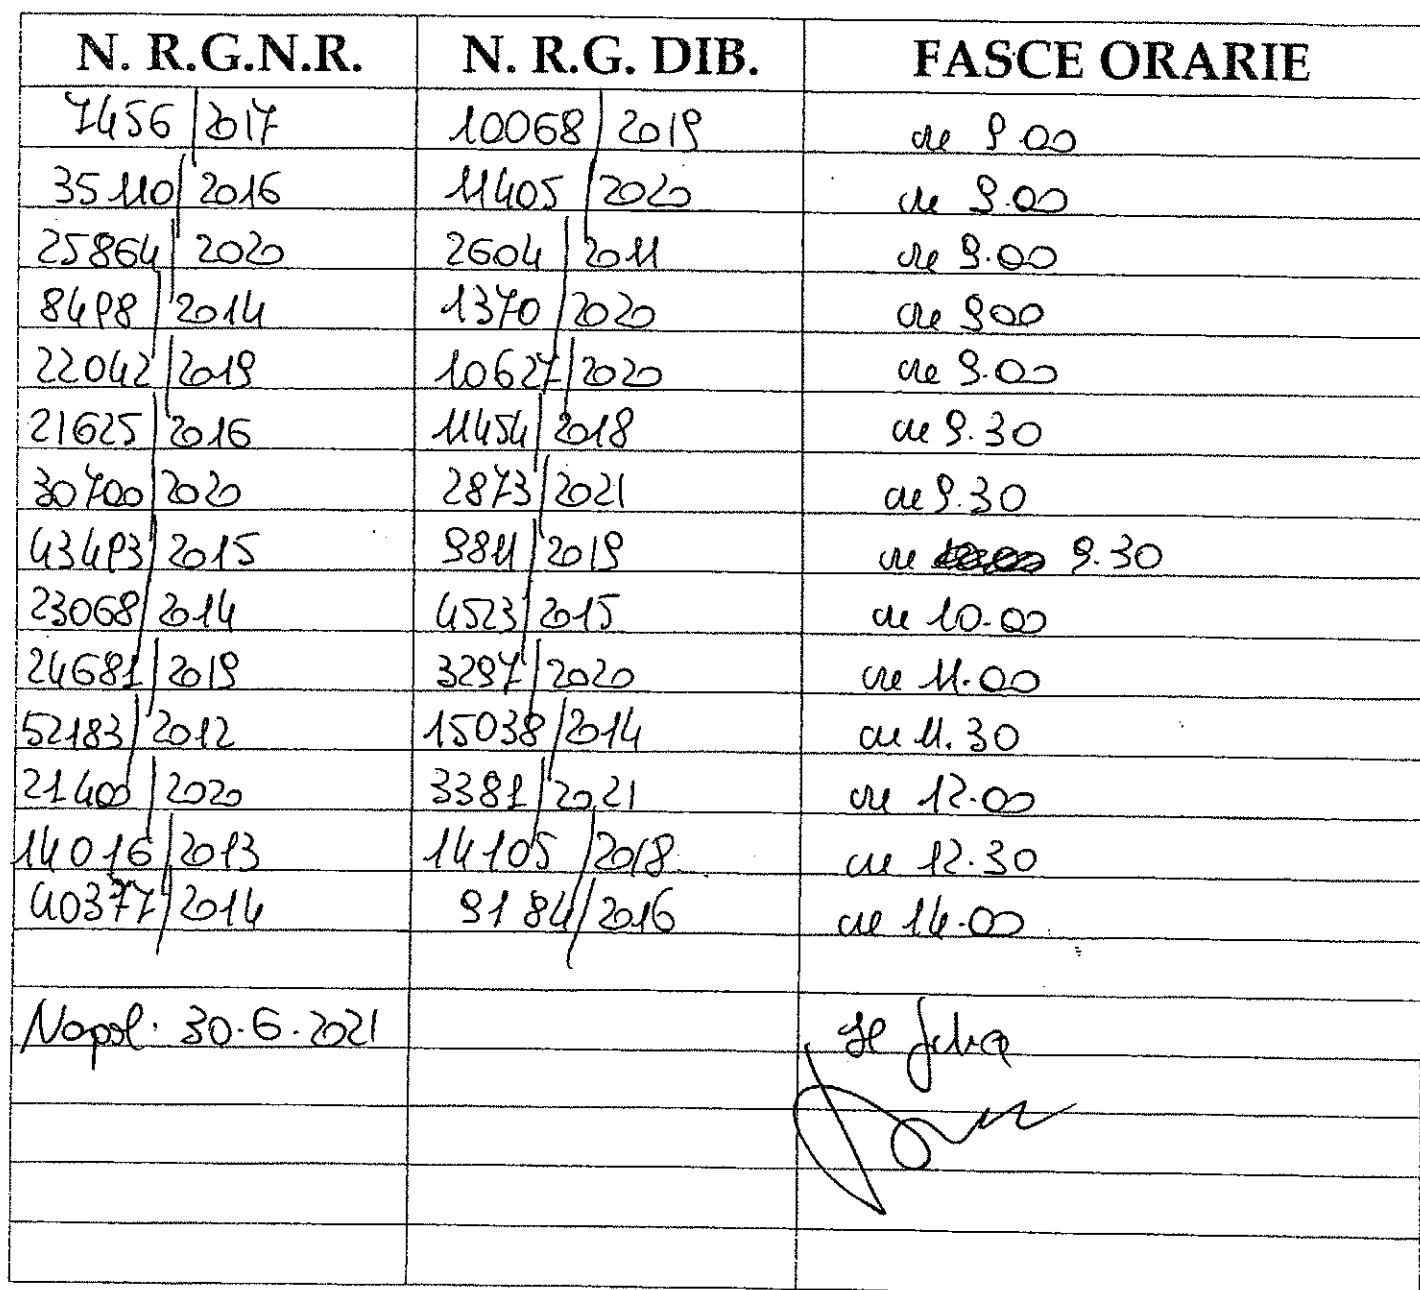 N. R.G.N.R. N. R.G. DIB. FASCE ORARIE
7456/2017 10068/2019 ore 9.00
35110/2016 11405/2020 ore 9.00
25864/2020 2604/2011 ore 9.00
8498/2014 1370/2020 ore 900
22042/2019 10627/2020 ore 9.00
21625/2016 11454/2018 ore 9.30
30700/2020 2873/2021 ore 9.30
43493/2015 9811/2019 ore 9.30
23068/2014 4523/2015 ore 10.00
24681/2019 3297/2020 ore 11.00
52183/2012 15038/2014 ore 11.30
21400/2020 3381/2021 ore 12.00
14016/2013 14105/2018 ore 12.30
40377/2014 9184/2016 ore 14.00
Napoli 30.6.2021 Il